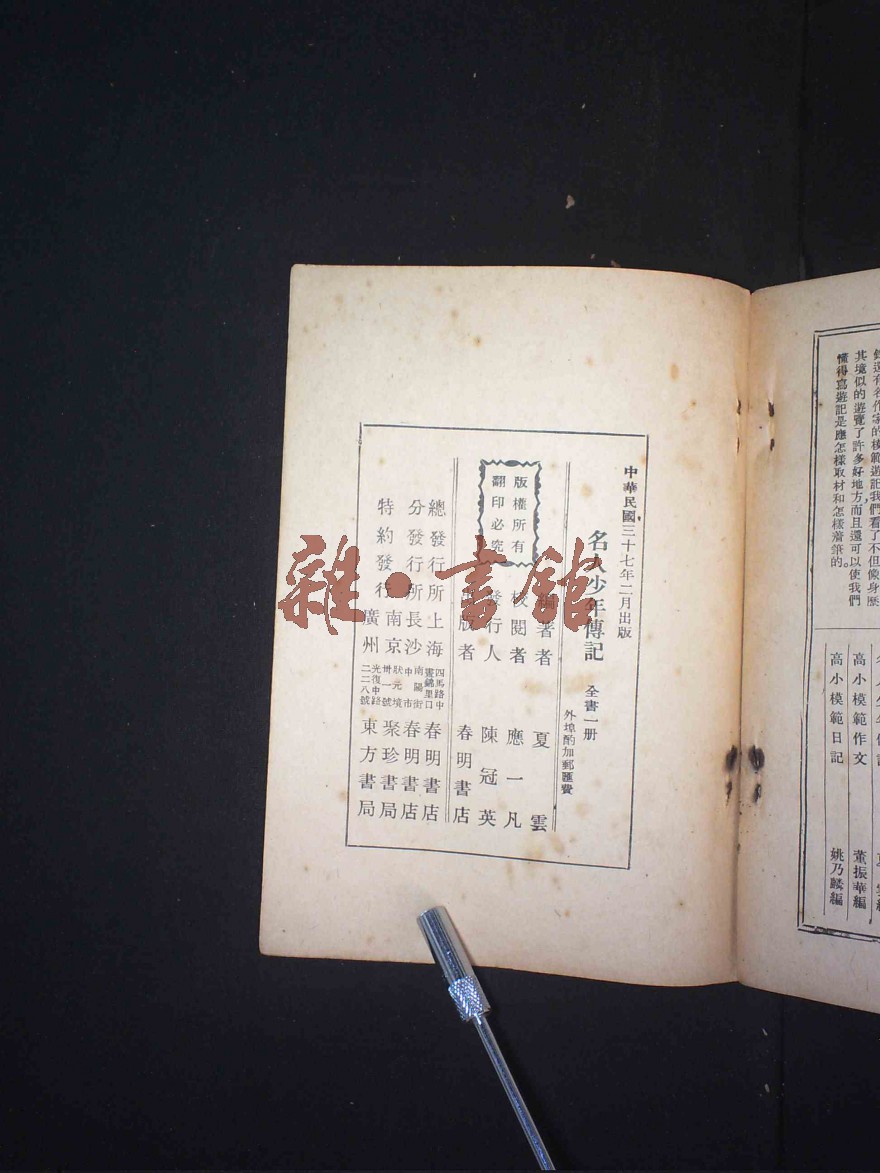 其境似的遊覽了許多好地方,而且還可以使我們
懂得寫遊記是應怎樣取材和怎樣着筆的。
高小模範作文 董振華編
高小模範日記 姚乃麟編
中華民國三十七年二月出版
名人少年傳記 全書一册
外埠酌加郵匯費
編著者 夏雲
校閱者 應一凡
發行人 陳冠英
出版者 春明書店
版權所有
翻印必究
總發行所 上海 四馬路中晝錦里口 春明書店
分發行所 長沙 南陽街中市 春明書店
特約發行 南京 狀元境卅一號 聚珍書局
廣州 光復中路二二八號 東方書局
雜·書館